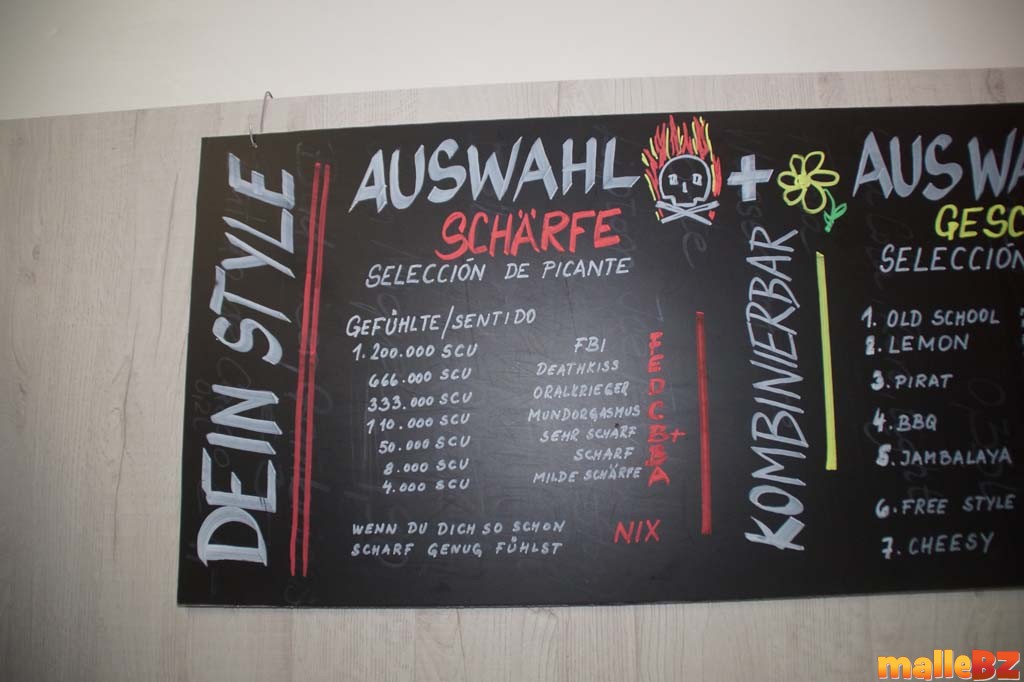 DEIN STYLE
AUSWAHL
SCHÄRFE
SELECCIÓN DE PICANTE
GEFÜHLTE/SENTIDO
1.200.000 SCU FBI F
666.000 SCU DEATHKISS E
333.000 SCU ORALKRIEGER D
110.000 SCU MUNDORGASMUS C
50.000 SCU SEHR SCHARF B+
8.000 SCU SCHARF B
4.000 SCU MILDE SCHÄRFE A
WENN DU DICH SO SCHON NIX
SCHARF GENUG FÜHLST
+
KOMBINIERBAR
AUSWA
GESC
SELECCIÓN
1. OLD SCHOOL
2. LEMON
3. PIRAT
4. BBQ
5. JAMBALAYA
6. FREE STYLE
7. CHEESY
malleBZ